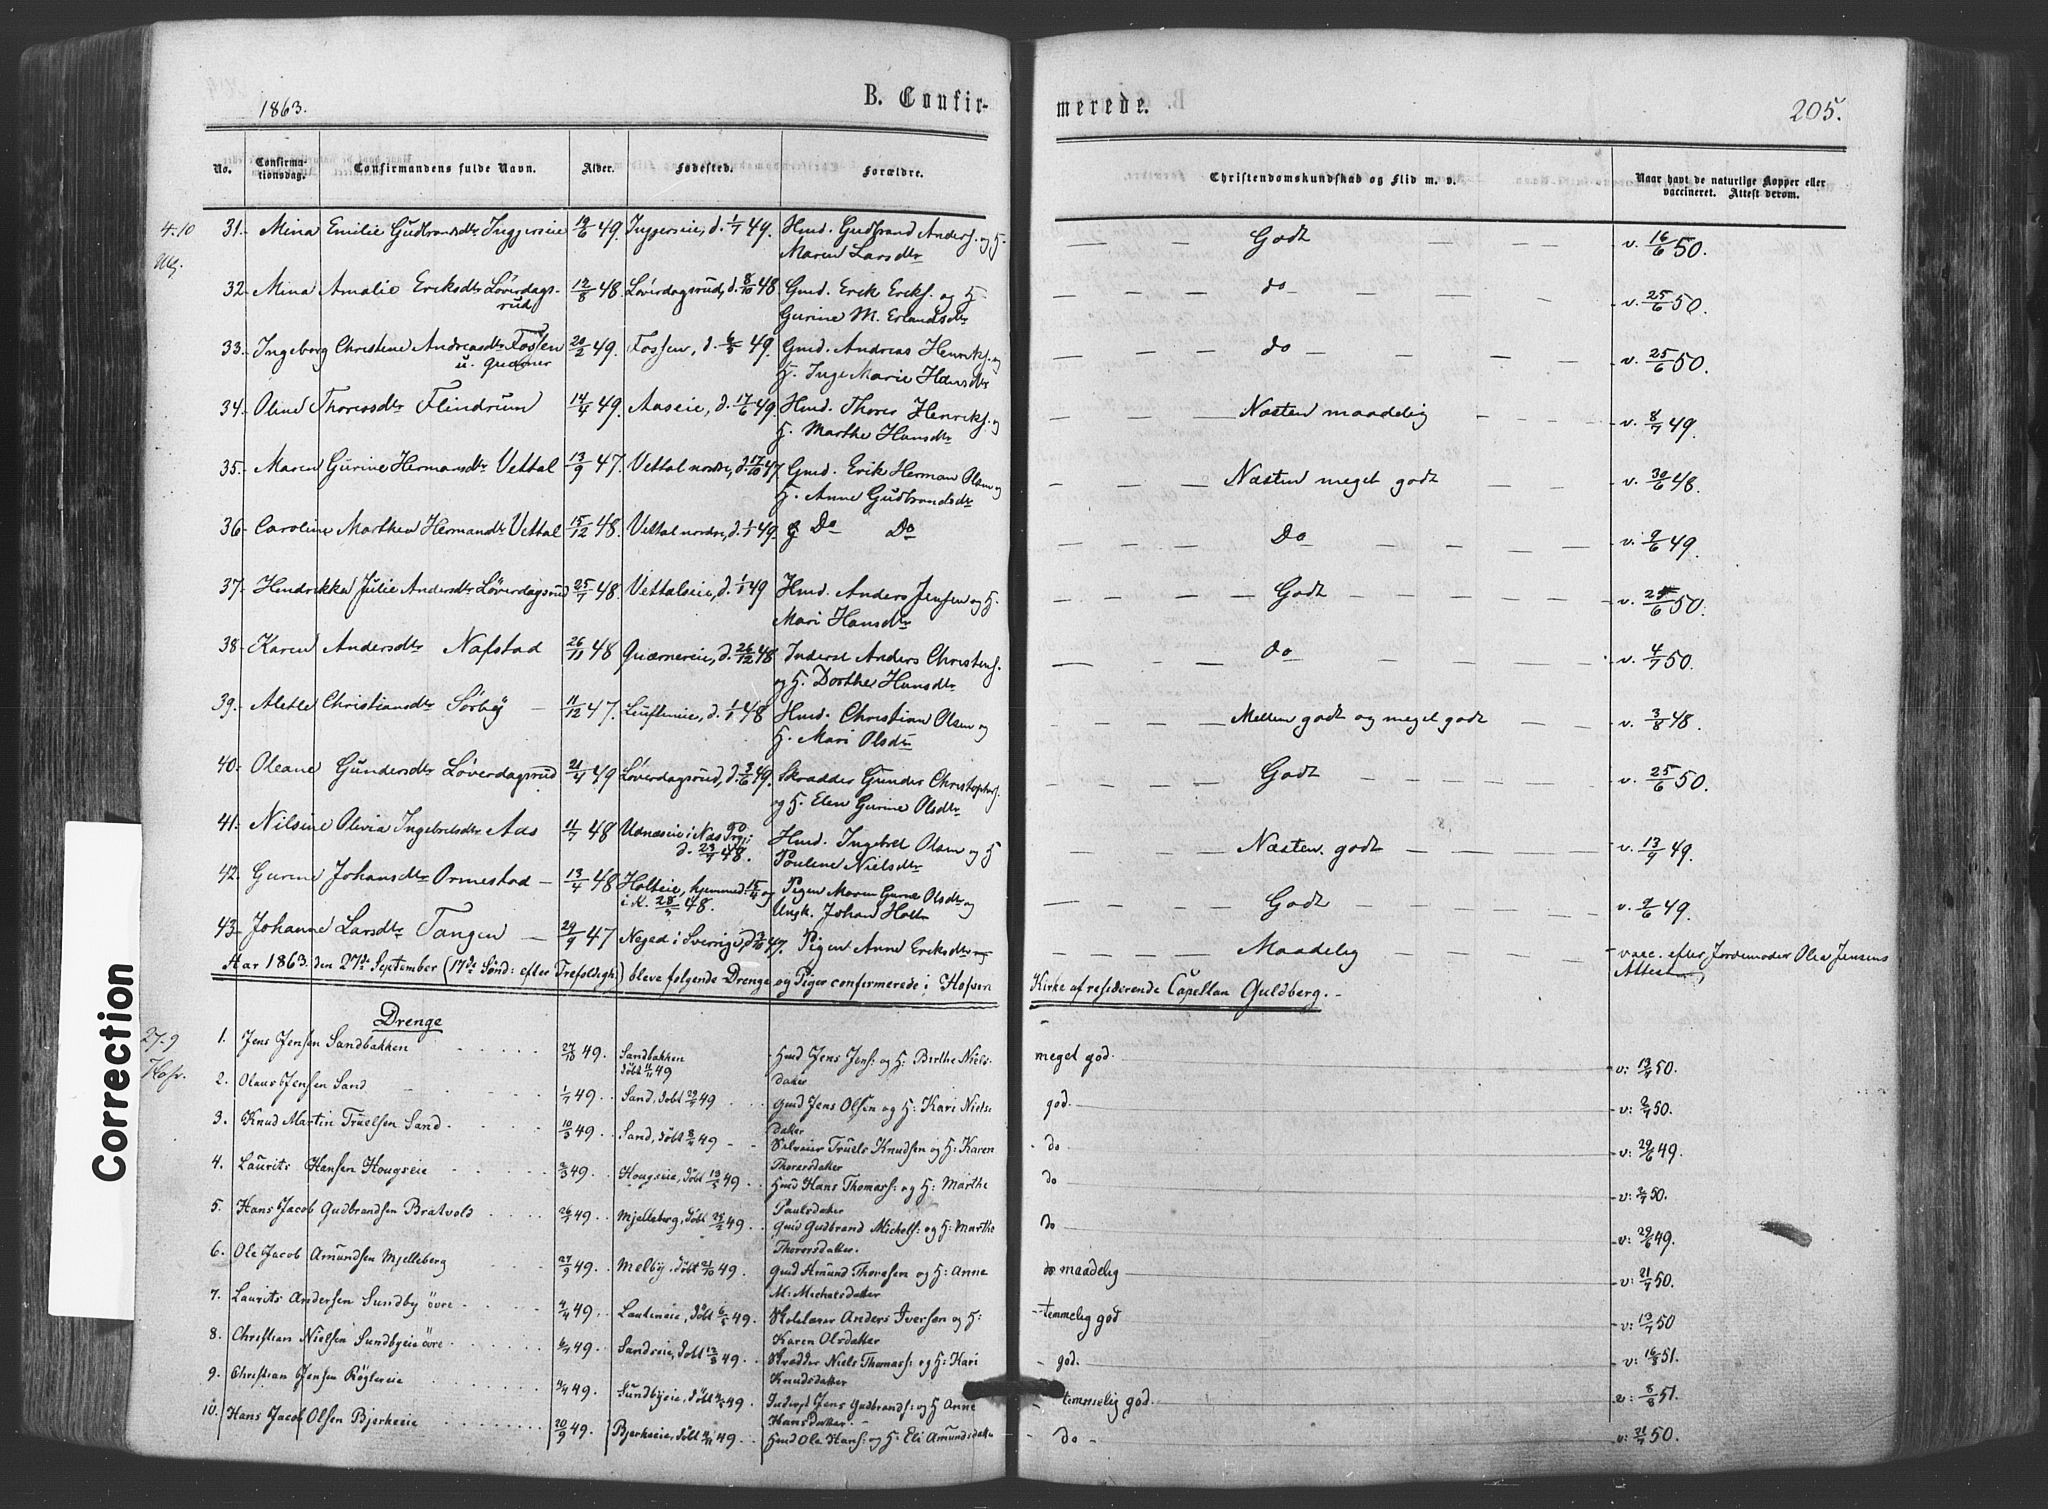 1863.
B. Confir-
merede.
205.
No.
Confirma-
tionsdag.
Confirmandens fulde Navn.
Alder.
Fødested.
Forældre.
Christendomskundskab og Flid m. v.
Naar havt de naturlige Kopper eller
vaccineret. Attest derom.
4-10
31. Mina Emilie Gudbrandsdtr 19/6 49 d. 1/1 49. Hmd. Gudbrand Anders. og H. Godt v. 16/6 50.
Maren Larsdtr
32. Mina Amalie Eriksdtr Løverdags- 12/8 48 Løverdagsrud, d. 8/10 48 Gmd. Erik Eriks. og H. do v. 25/6 50.
rud Gurine M. Erlandsdtr
33. Ingeborg Christine Andreasdtr Fossen 20/2 49. Fossen, d. 6/5 49. Gmd. Andreas Henriks. og do v. 25/6 50.
u. Quærner H. Inge Marie Hansdtr
34. Oline Thoresdtr Flindrum 14/4 49. Aaseie, d. 17/6 49. Hmd. Thores Henriks. og Næsten maadelig v. 8/7 49.
H. Marthe Hansdtr
35. Maren Gurine Hermansdtr Vettal 13/9 47. Vettal nordre, d. 17/10 47 Gmd. Erik Herman Olsen og Næsten meget godt v. 30/6 48.
H. Anne Gudbrandsdtr
36. Caroline Marthea Hermandtr Vettal 15/12 48. Vettal nordre, d. 1/1 49. Do Do Do v. 9/6 49.
37. Hendrikka Julie Andersdtr Løverdagsrud 25/7 48. Vettaleie, d. 1/1 49 Hmd. Anders Jensen og H. Godt v. 25/6 50.
Mari Hansdtr
38. Karen Andersdtr Nafstad 26/11 48 Quærnereie, d. 26/12 48 Inderst Anders Christens. do v. 4/7 50.
og H. Dorthe Hansdtr
39. Aletle Christiansdtr Sørby 11/12 47. d. 1/1 48 Hmd. Christian Olsen og Mellem godt og meget godt v. 3/8 48.
H. Mari Olsdtr
40. Oleane Gundersdtr Løverdagsrud 21/4 49 Løverdagsrud, d. 3/6 49. Skrædder Gunder Christophers. Godt v. 25/6 50.
og H. Elen Gurine Olsdtr
41. Nilsine Olivia Ingebretsdtr Aas 11/7 48 Udnæseie i Næs Hmd. Ingebret Olsen og H. Næsten godt v. 13/9 49.
d. 23/7 48. Pouline Nielsdtr
42. Gurine Johansdtr Ormestad 13/4 48 Holteie, hjemmed. 15/4 og Pigen Maren Gurine Olsdtr og Godt v. 9/6 49.
i K. 28/5 48. Ungk. Johan Holte
43. Johanne Larsdtr Tangen 29/9 47 i Sverrige, d. 3/10 47. Pigen Anne Eriksdtr Maadelig vacc. efter Jordemoder Olea Jensens
Attest
Aar 1863. den 27de September (17de Sønd: efter Trefoldigh:) bleve følgende Drenge og Piger confirmerede i Hofsen Kirke af residerende Capellan Guldberg.
Drenge
27-9
1. Jens Jensen Sandbakken 27/10 49. Sandbakken Hmd Jens Jens: og H: Birthe Niels- meget god. v: 13/7 50.
døbt 11/11 49 datter
2. Olaus Jensen Sand 1/7 49. Sand, døbt 29/7 49 Gmd Jens Olsen og H: Kari Niels- god. v: 2/7 50.
datter
3. Knud Martin Truelsen Sand 10/3 49. Sand, døbt 8/4 49 Selveier Truels Knudsen og H: Karen do v: 29/6 49.
Thoresdatter
4. Laurits Hansen Hougseie 2/3 49. Hougseie, døbt 13/5 49. Hmd Hans Thomass: og H: Marthe do v: 2/7 50.
Paulsdatter
5. Hans Jacob Gudbrandsen Bratvold 26/1 49. Mjelleberg, døbt 25/2 49. Gmd Gudbrand Michels: og H: Marthe do v: 29/6 49.
Thorersdatter.
6. Ole Jacob Amundsen Mjelleberg 27/9 49. Melby, døbt 21/10 49. Gmd Amund Thoresen og H: Anne maadelig v: 21/7 50.
M: Michelsdatter
7. Laurits Andersen Sundby øvre 4/4 49. døbt 6/5 49. Skolelærer Anders Iversen og H: temmelig god v: 13/7 50
Karen Olsdatter
8. Christian Nielsen Sundbyeie øvre 49. Sandseie, døbt 12/3 49. Skrædder Niels Thomass: og H: Kari god. v: 16/8 51.
Knudsdatter
9. Christian Jensen Røgleeie 49. Sundbyeie, døbt 49. Inderst Jens Gudbrands: og H: Anne temmelig god. v: 8/8 51.
Hansdatter.
10. Hans Jacob Olsen Bjerkeeie 20/9 49. Bjerkeeie, døbt 4/11 49. Hmd Ole Hans: og H: Eli Amundsdatter do v: 21/7 50.
Correction